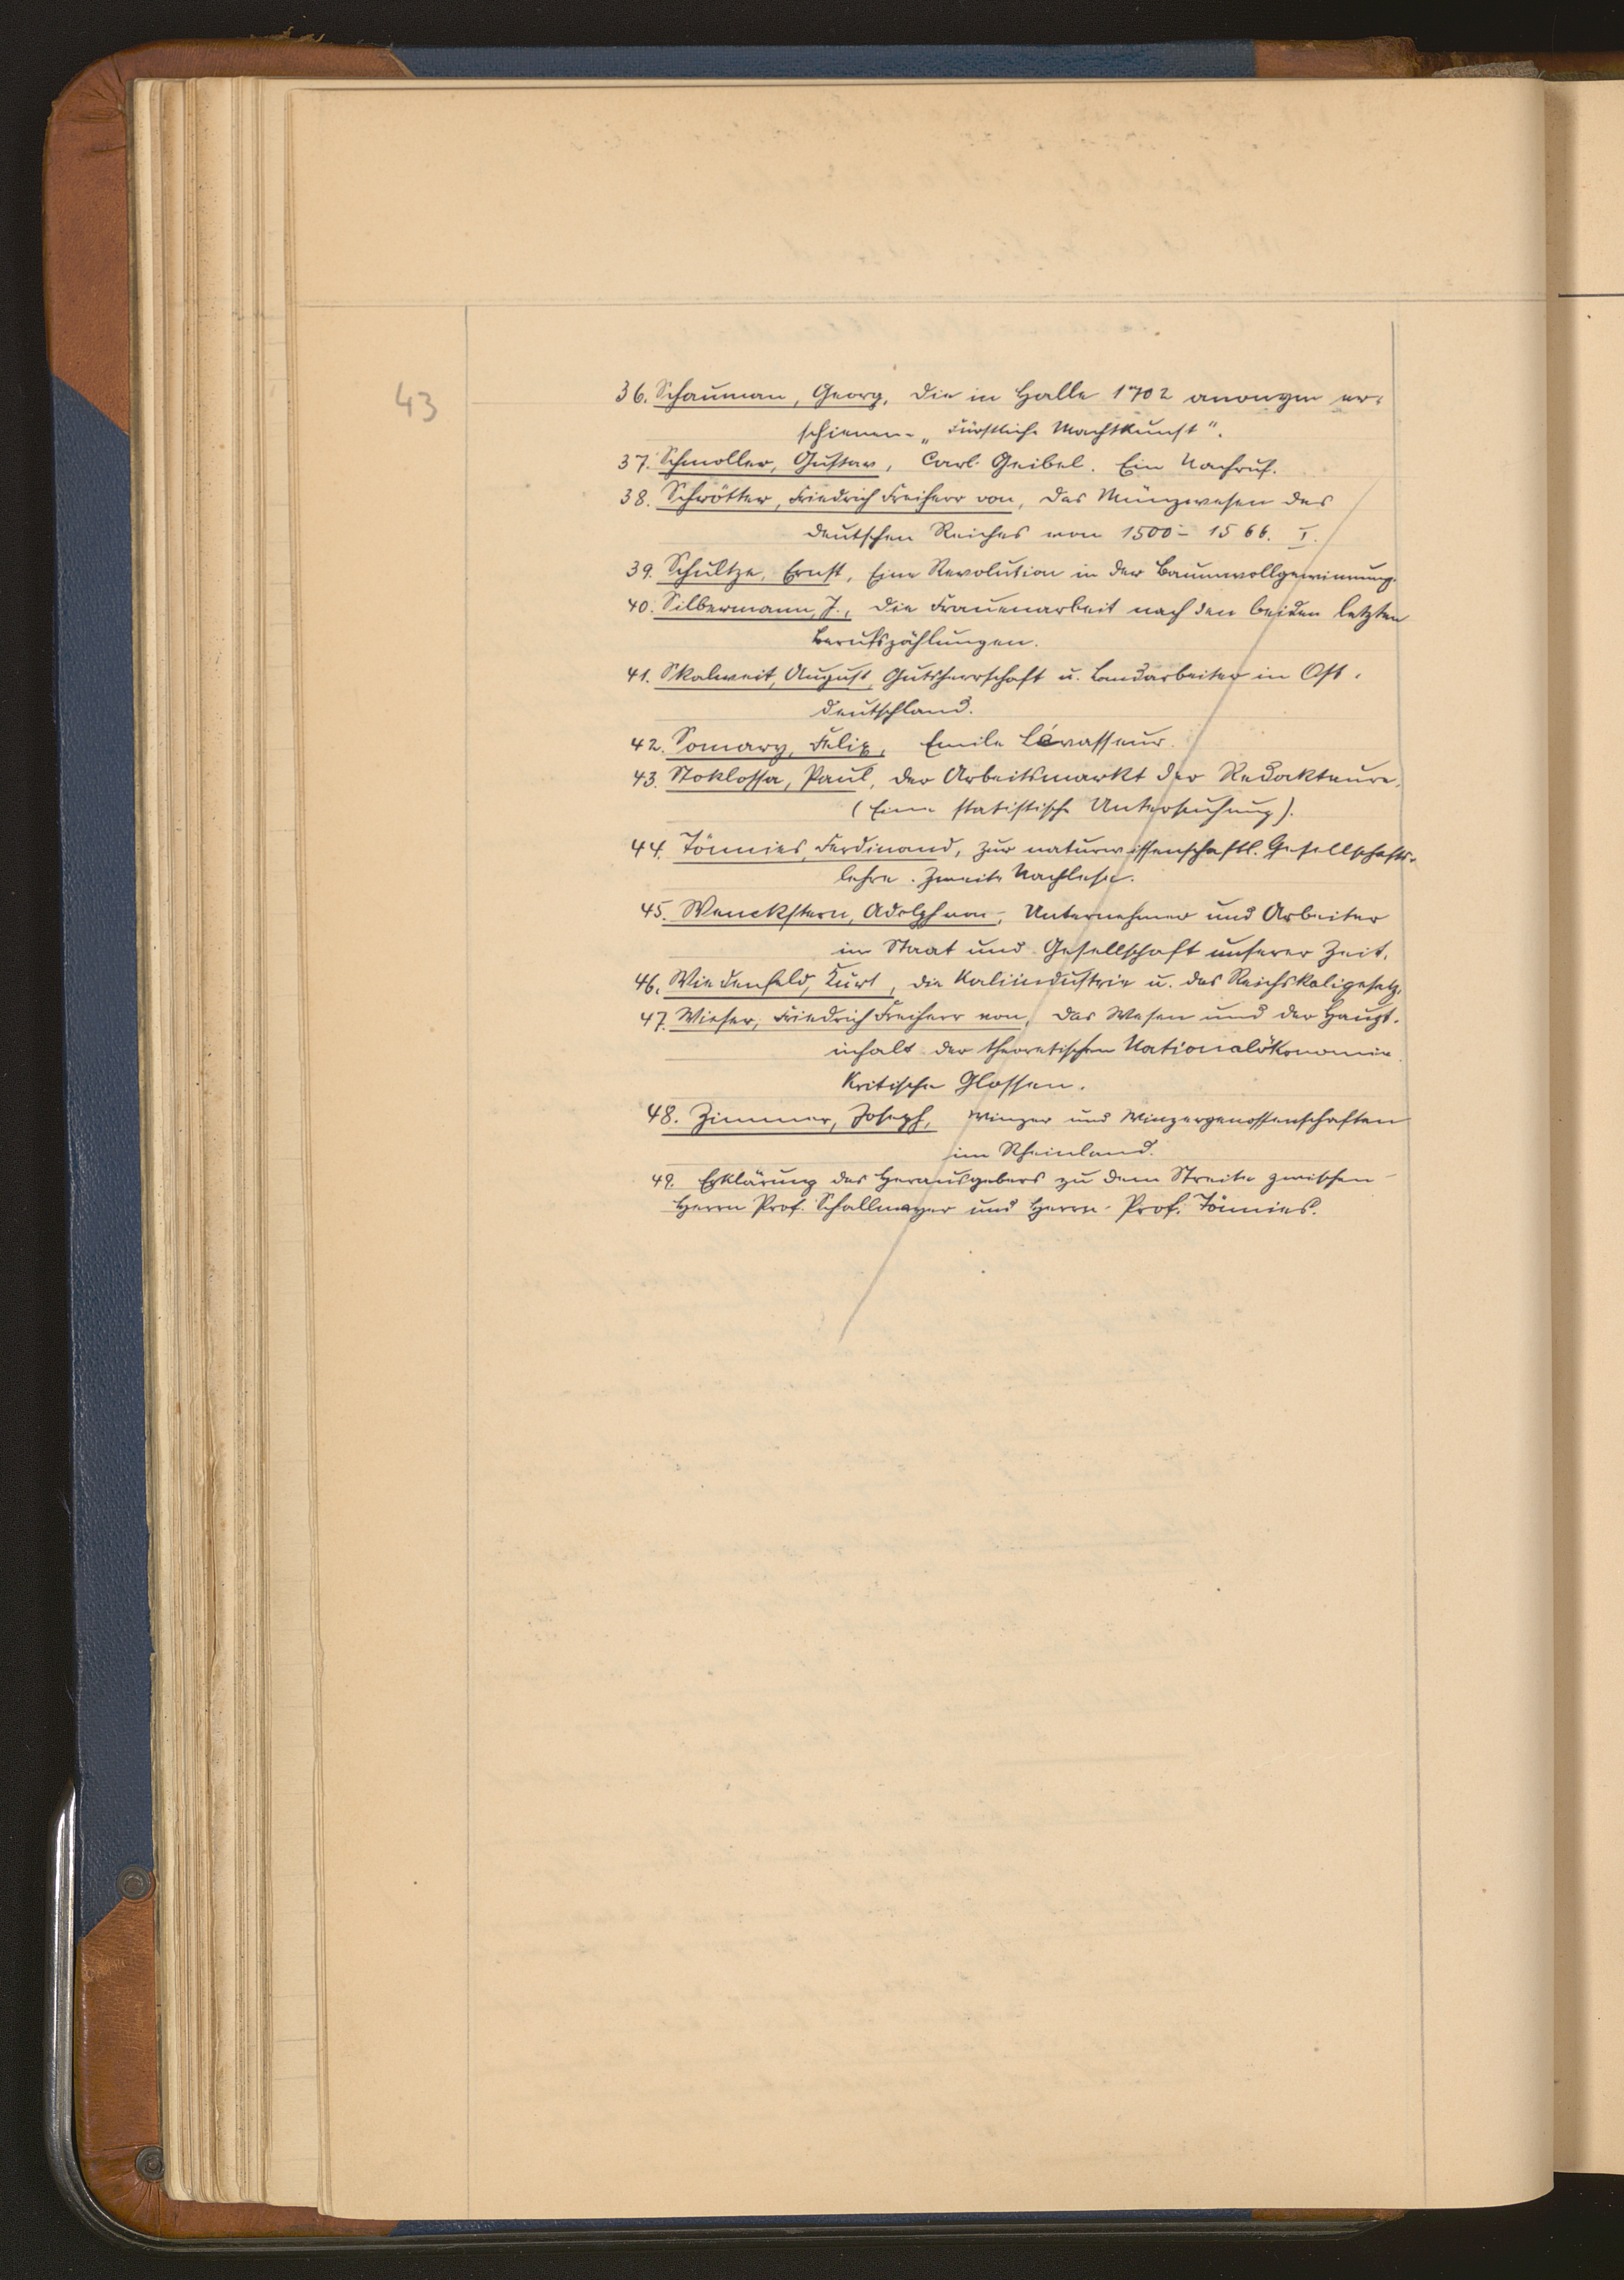 43
36. Schauman, Georg, Die in Halle 1702 anonym er-
schienene „Fürstliche Machtkunst“.
37. Schmoller, Gustav, Carl Geibel. Ein Nachruf.
38. Schrötter, Friedrich Freiherr von, Das Münzwesen des
deutschen Reiches von 1500 - 1566. I.
39. Schultze, Ernst, Eine Revolution in der Baumwollgewinnung.
40. Silbermann, J., Die Frauenarbeit nach den beiden letzten
Berufszählungen.
41. Skalweit, August, Gutsherrschaft u. Landarbeiter in Ost-
deutschland.
42. Somary, Felix, Emile Lévasseur.
43. Stoklossa, Paul, Der Arbeitsmarkt der Redakteure.
(Eine statistische Untersuchung).
44. Tönnies, Ferdinand, Zur naturwissenschaftl. Gesellschafts-
lehre. Zweite Nachlese.
45. Wenckstern, Adolph von, Unternehmer und Arbeiter
in Staat und Gesellschaft unserer Zeit.
46. Wiedenfeld, Kurt, Die Kaliindustrie u. das Reichskaligesetz.
47. Wieser, Friedrich Freiherr von, Das Wesen und der Haupt-
inhalt der theoretischen Nationalökonomie.
Kritische Glossen.
48. Zimmer, Joseph, Winzer und Winzergenossenschaften
im Rheinland.
49. Erklärung des Herausgebers zu dem Streite zwischen
Herrn Prof. Schallmayer und Herrn Prof. Tönnies.